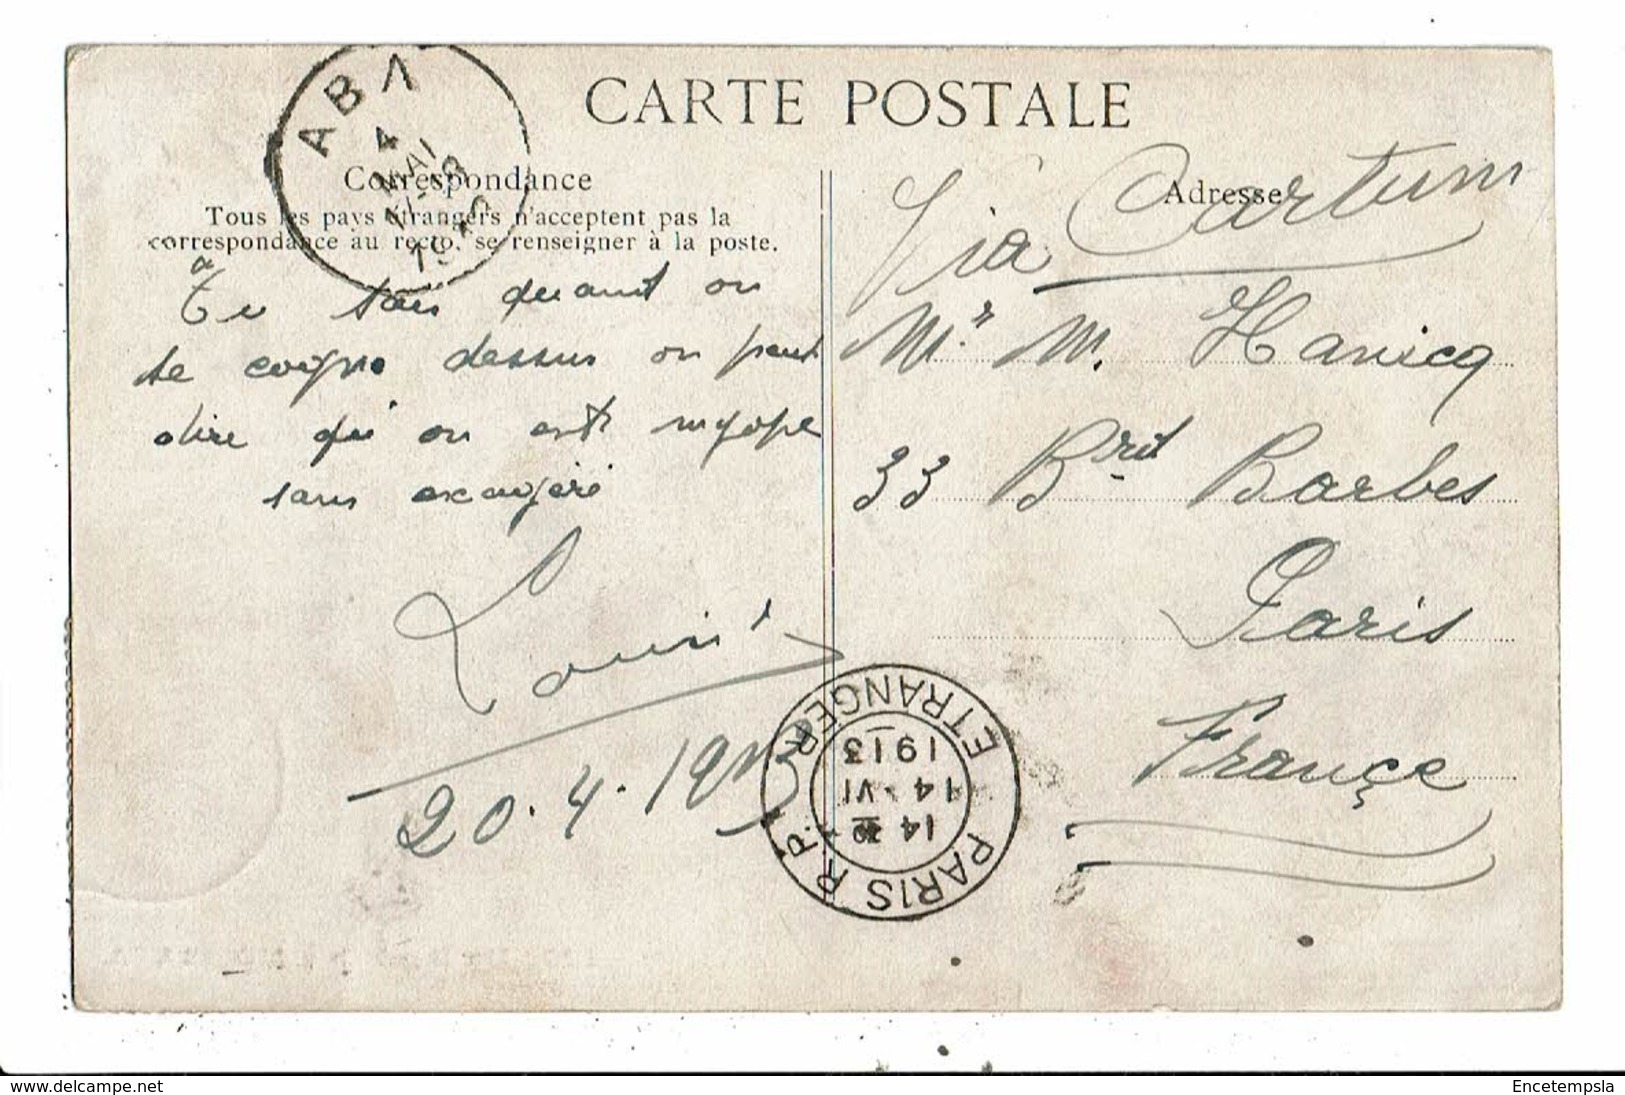 CARTE POSTALE
ABA
4
MAI
1913
Correspondance
Tous les pays étrangers n'acceptent pas la
correspondance au recto, se renseigner à la poste.
Tu sais quand on
se cogne dessus on peut
dire qu'on est myope
sans exagéré
Louis
20.4.1913
Adresse
Via Cartum
Mr. M. Hanicq
33 Bvd Barbes
Paris
France
PARIS R.P. ETRANGER
14
14 VI
1913
www.delcampe.net
Encetempsla